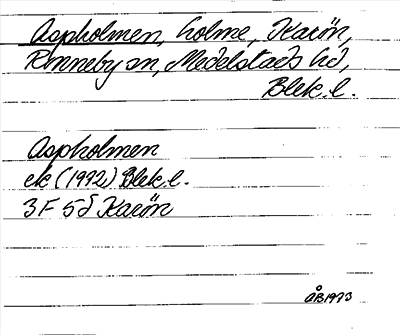 Aspholmen, holme, Karön,
Ronneby sn, Medelstads hd,
Blek. l.
Aspholmen
ek (1972) Blek. l.
3F 5d Karön
ÅB 1973